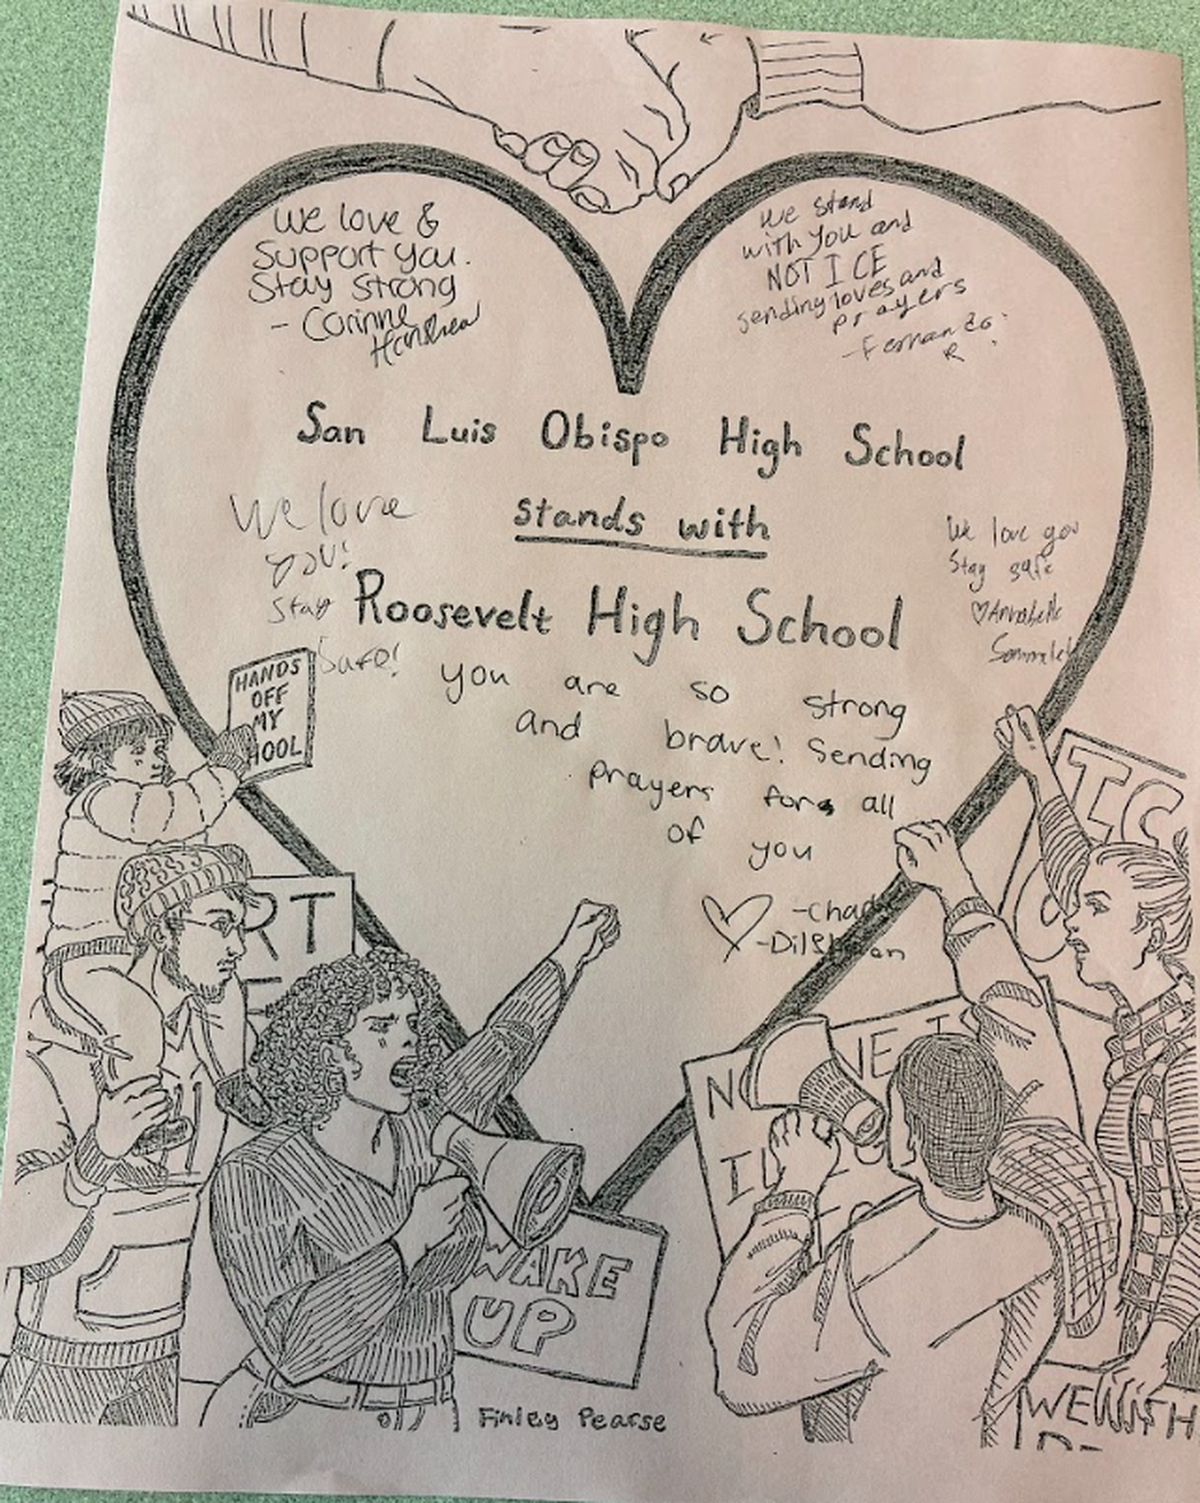 We love &
Support you.
Stay strong
- Corinne
We stand
with you and
NOT ICE
sending loves and
prayers
- Fernando
R
San Luis Obispo High School
stands with
Roosevelt High School
We love
you!
Stay
Safe!
We love you
Stay safe
♡ Annabelle
you are so strong
and brave! Sending
prayers for all
of you
♡ -Chad
HANDS
OFF
MY
HOOL
RT
IC
WAKE
UP
Finley Pearse
WE WITH